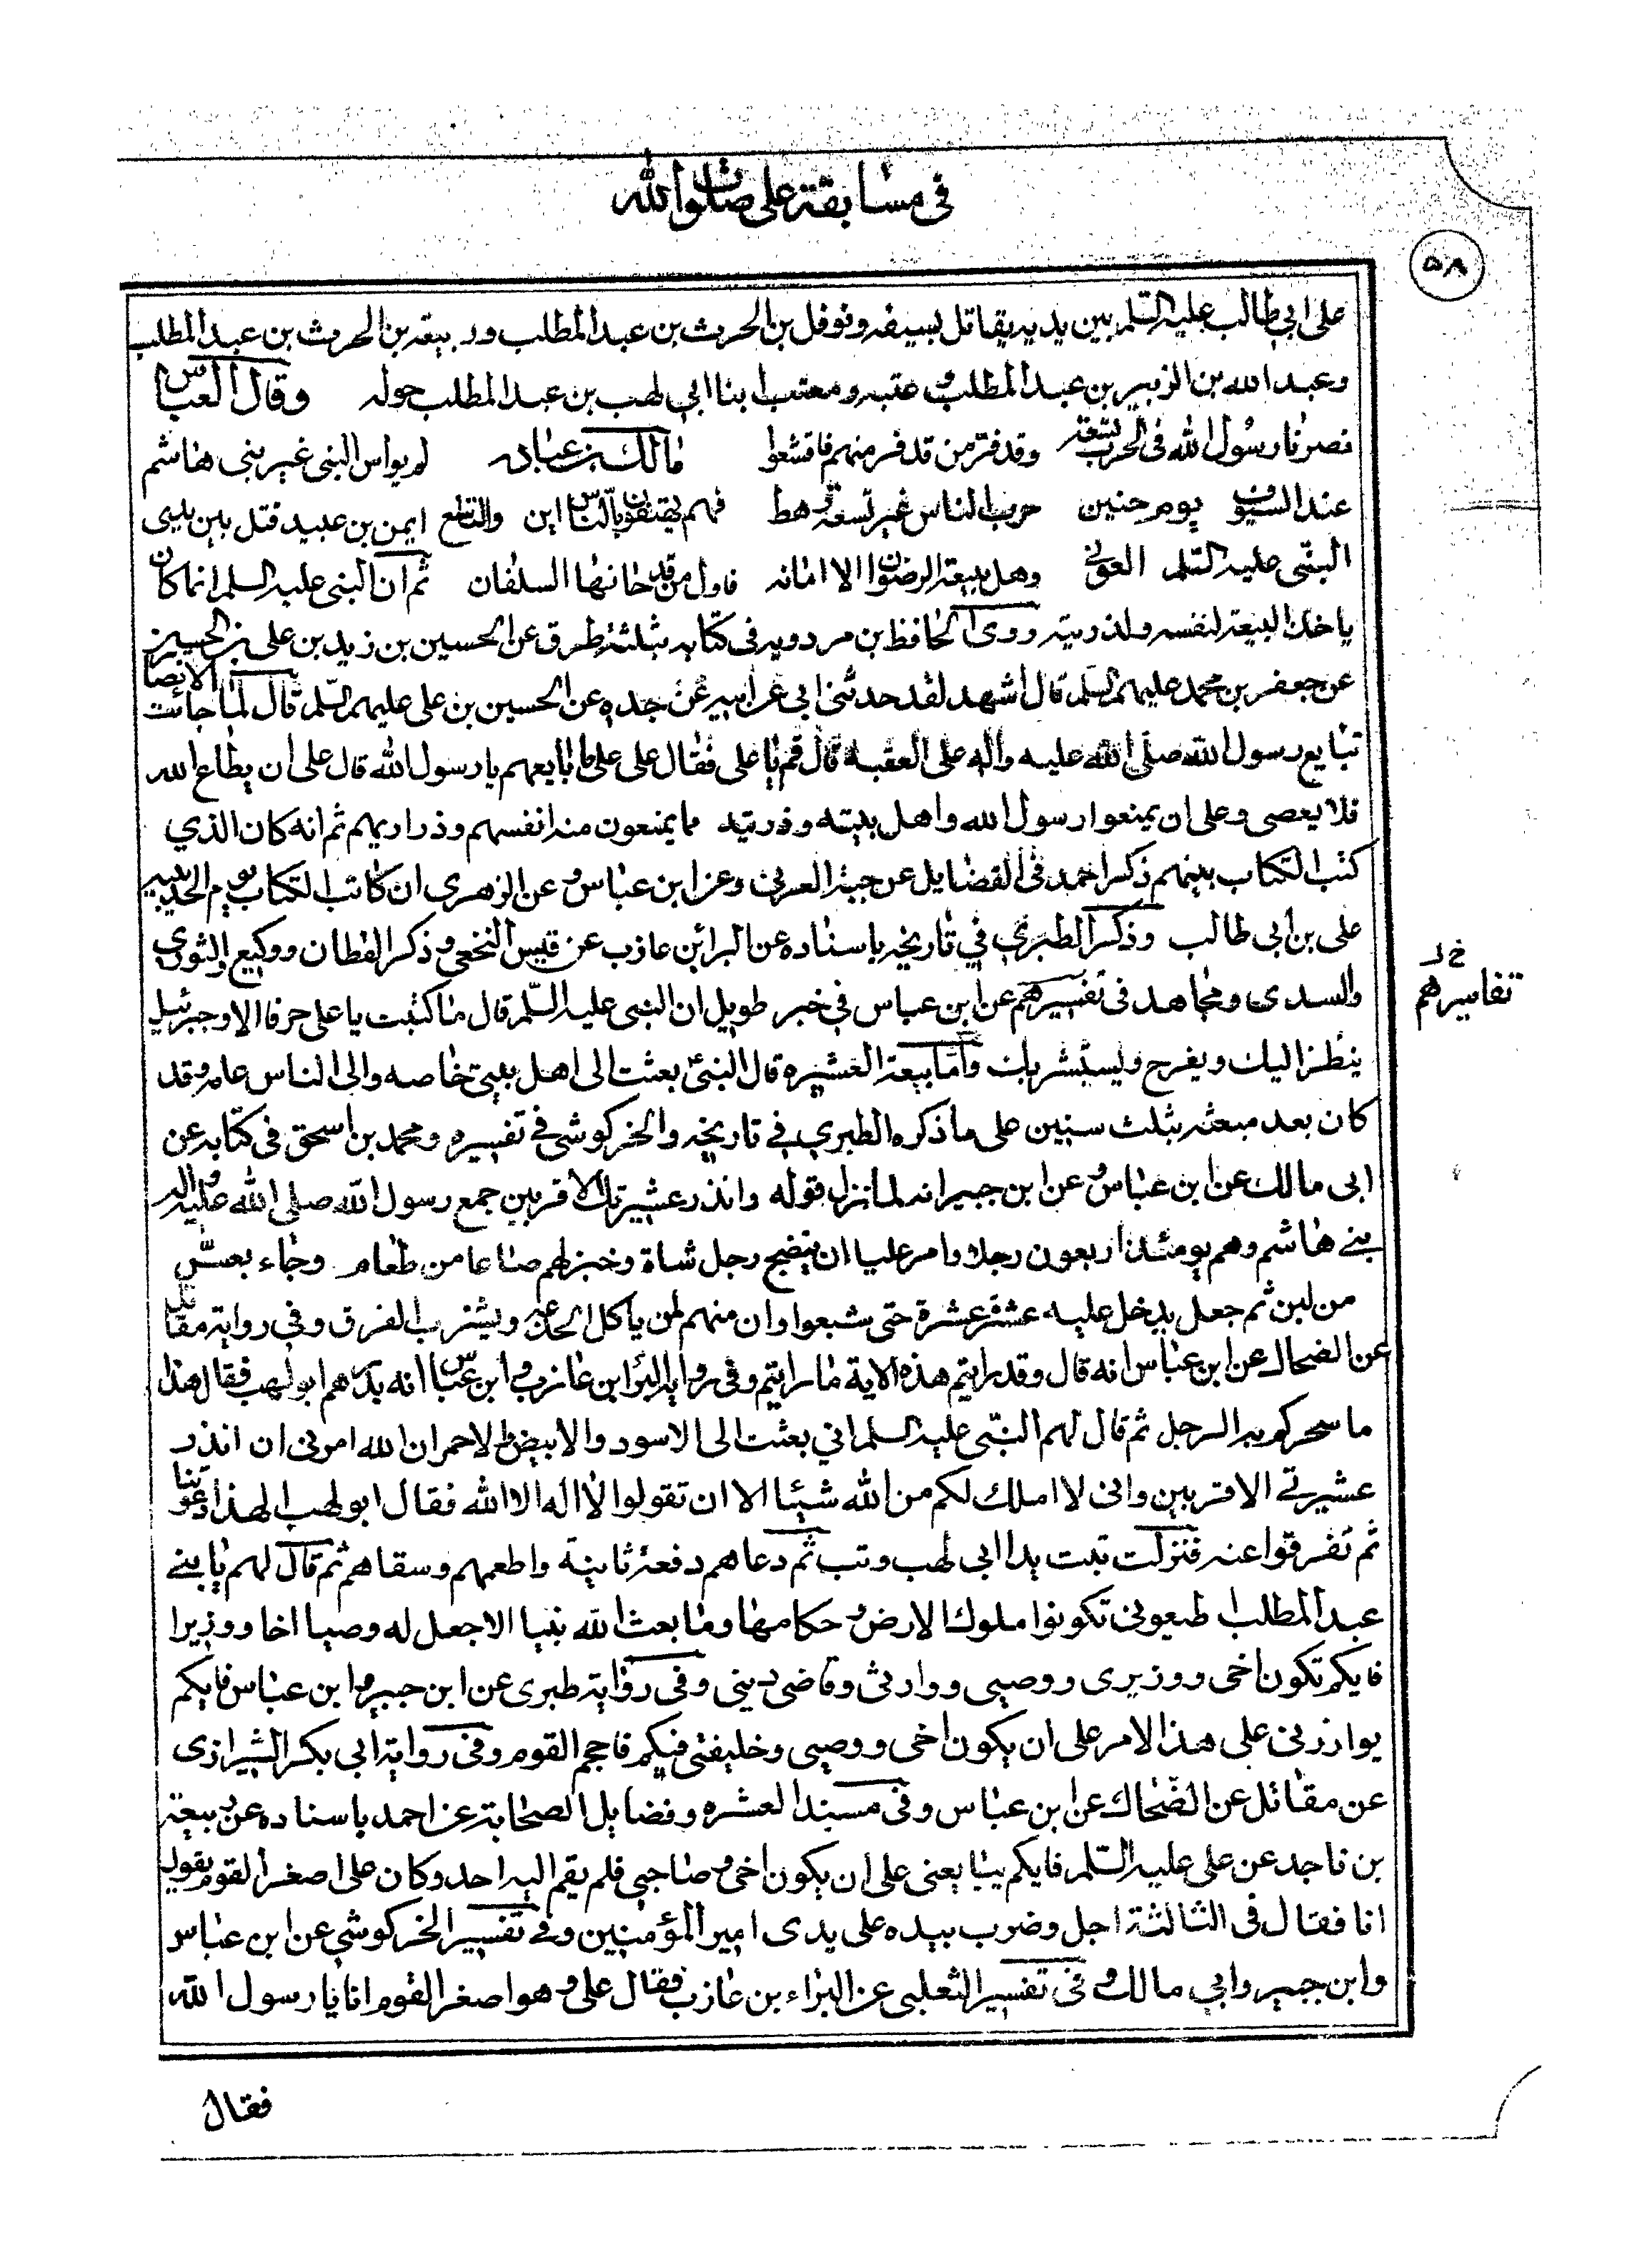 فى مسابقة على صلوات الله
٥٨
على ابي طالب عليه السلم بين يديه يقاتل بسيفه ونوفل بن الحرث بن عبد المطلب وربيعه بن الحرث بن عبد المطلب
وعبد الله بن الزبير بن عبد المطلب و عتبه ومعتب ابنا ابي لهب بن عبد المطلب حوله وقال العباس
نصرنا رسول الله فى الحرب تسعة وقد فر من قد فر منهم فاقشعوا مالك بن عباده لم يواس النبى غير بنى هاشم
عند السيوف يوم حنين هرب الناس غير تسعة رهط فهم يهتفون بالناس اين والتاسع ايمن بن عبيد قتل بين يدى
النبّى عليه السّلم العونى وهل بيعة الرضوان الا امانه فاول من قد خانها السلفان ثم ان النبى عليه السلم انما كان
ياخذ البيعة لنفسه ولذريته وروى الحافظ بن مردويه فى كتابه بثلثة طرق عن الحسين بن زيد بن على بن الحسين
عن جعفر بن محمد عليهم السلم قال اشهد لقد حدثنى ابي عن ابيه عن جده عن الحسين بن على عليهم السّلم قال لما جائت الانصار
تبايع رسول الله صلى الله عليه واله على العقبة قال قم يا على فقال على على ما ابايعهم يا رسول الله قال على ان يطاع الله
فلا يعصى وعلى ان يمنعوا رسول الله واهل بيته وذريته مما يمنعون منه انفسهم وذراريهم ثم انه كان الذي
كتب الكتاب بينهم ذكر احمد فى الفضايل عن حبة العرنى وعن ابن عباس و عن الزهرى ان كاتب الكتاب يوم الحديبيه
على بن ابى طالب وذكر الطبري في تاريخه باسناده عن البرا بن عازب عن قيس النخعى و ذكر القطان ووكيع والثورى
والسدى ومجاهد فى تفسيرهم عن ابن عباس في خبر طويل ان النبى عليه السّلم قال ما كتبت يا على حرفا الا وجبرئيل
خ ل
تفاسيرهم
ينظر اليك ويفرح ويستبشر بك واما بيعة العشيرة قال النبىّ بعثت الى اهل بيتى خاصه والى الناس عامه وقد
كان بعد مبعثه بثلث سنين على ما ذكره الطبري في تاريخه والخركوشى في تفسيره ومحمد بن اسحق فى كتابه عن
ابى مالك عن ابن عباس و عن ابن جبير انه لما نزل قوله وانذر عشيرتك الاقربين جمع رسول الله صلى الله عليه واله
بنى هاشم وهم يومئذ اربعون رجلا وامر عليا ان ينضج رجل شاة وخبز لهم صاعا من طعام وجاء بعسّ
من لبن ثم جعل يدخل عليه عشرة عشرة حتى شبعوا وان منهم لمن ياكل الجذعة ويشرب الفرق وفى رواية مقاتل
عن الضحاك عن ابن عباس انه قال وقد رايتم هذه الاية ما رايتم وفى رواية البرا ابن عازب و ابن عباس انه بدرهم ابو لهب فقال هذا
ما سحركم به الرجل ثم قال لهم النبّى عليه السلم اني بعثت الى الاسود والابيض والاحمر ان الله امرنى ان انذر
عشيرتى الاقربين وانى لا املك لكم من الله شيئا الا ان تقولوا لا اله الا الله فقال ابو لهب الهذا دعوتنا
ثم تفرقوا عنه فنزلت تبت يدا ابى لهب وتب ثم دعاهم دفعة ثانية واطعمهم وسقاهم ثم قال لهم يا بنى
عبد المطلب اطيعونى تكونوا ملوك الارض و حكامها وما بعث الله نبيا الا جعل له وصيا اخا ووزيرا
فايكم تكون اخى ووزيرى ووصيى ووارثى وقاضى دينى وفى رواية طبرى عن ابن جبير وابن عباس فايكم
يوازرنى على هذا الامر على ان يكون اخى ووصيى وخليفتى فيكم فاحجم القوم وفى رواية ابى بكر الشيرازى
عن مقاتل عن الضّحاك عن ابن عباس وفى مسند العشره وفضايل الصحابة عن احمد باسناده عن ربيعة
بن ناجد عن على عليه السّلم فايكم يبايعنى على ان يكون اخى و صاحبى فلم يقم اليه احد وكان على اصغر القوم يقول
انا فقال فى الثالثة اجل وضرب بيده على يدى امير المؤمنين وفى تفسير الخركوشي عن ابن عباس
وابن جبير وابي مالك و فى تفسير الثعلبى عن البراء بن عازب فقال على و هو اصغر القوم انا يا رسول الله
فقال